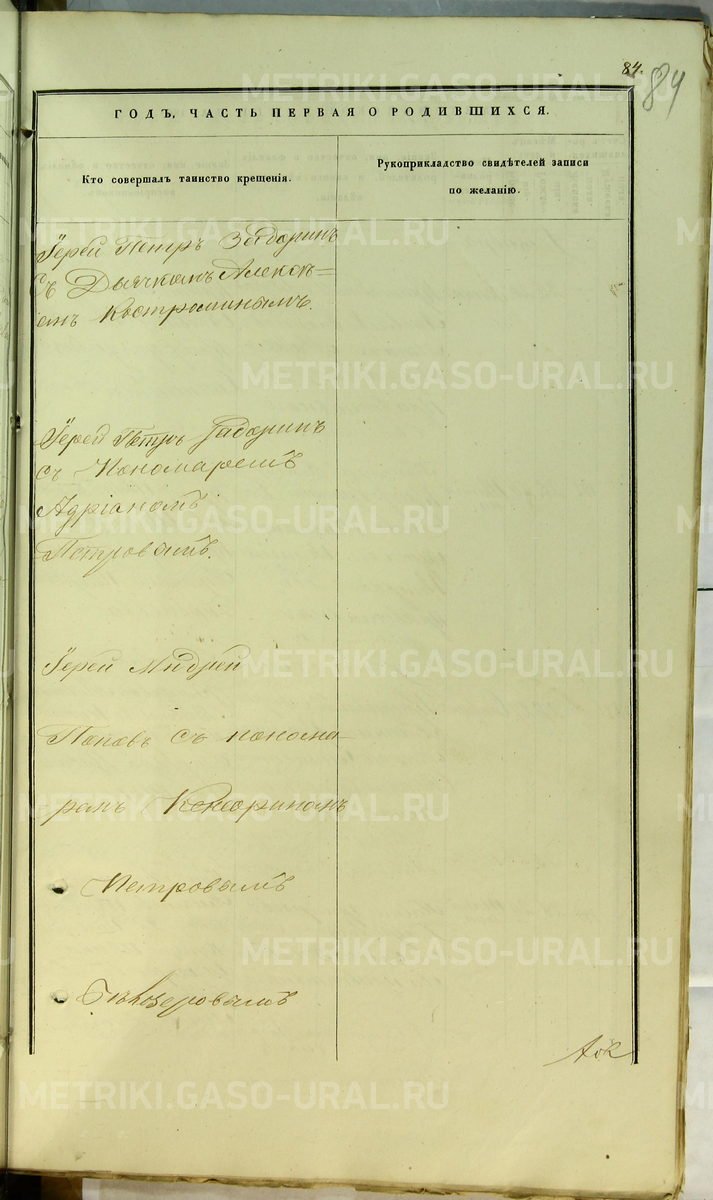 84.
84
ГОДЪ, ЧАСТЬ ПЕРВАЯ О РОДИВШИХСЯ.
Кто совершалъ таинство крещенія.
Рукоприкладство свидѣтелей записи
по желанію.
Іерей Петръ
съ Дьячкомъ Алексѣ=
емъ Костроминымъ.
Іерей Петръ
съ Пономаремъ
Адріаномъ
Петровымъ.
Іерей Андрей
Поповъ съ понома-
ремъ
Петровымъ
METRIKI.GASO-URAL.RU